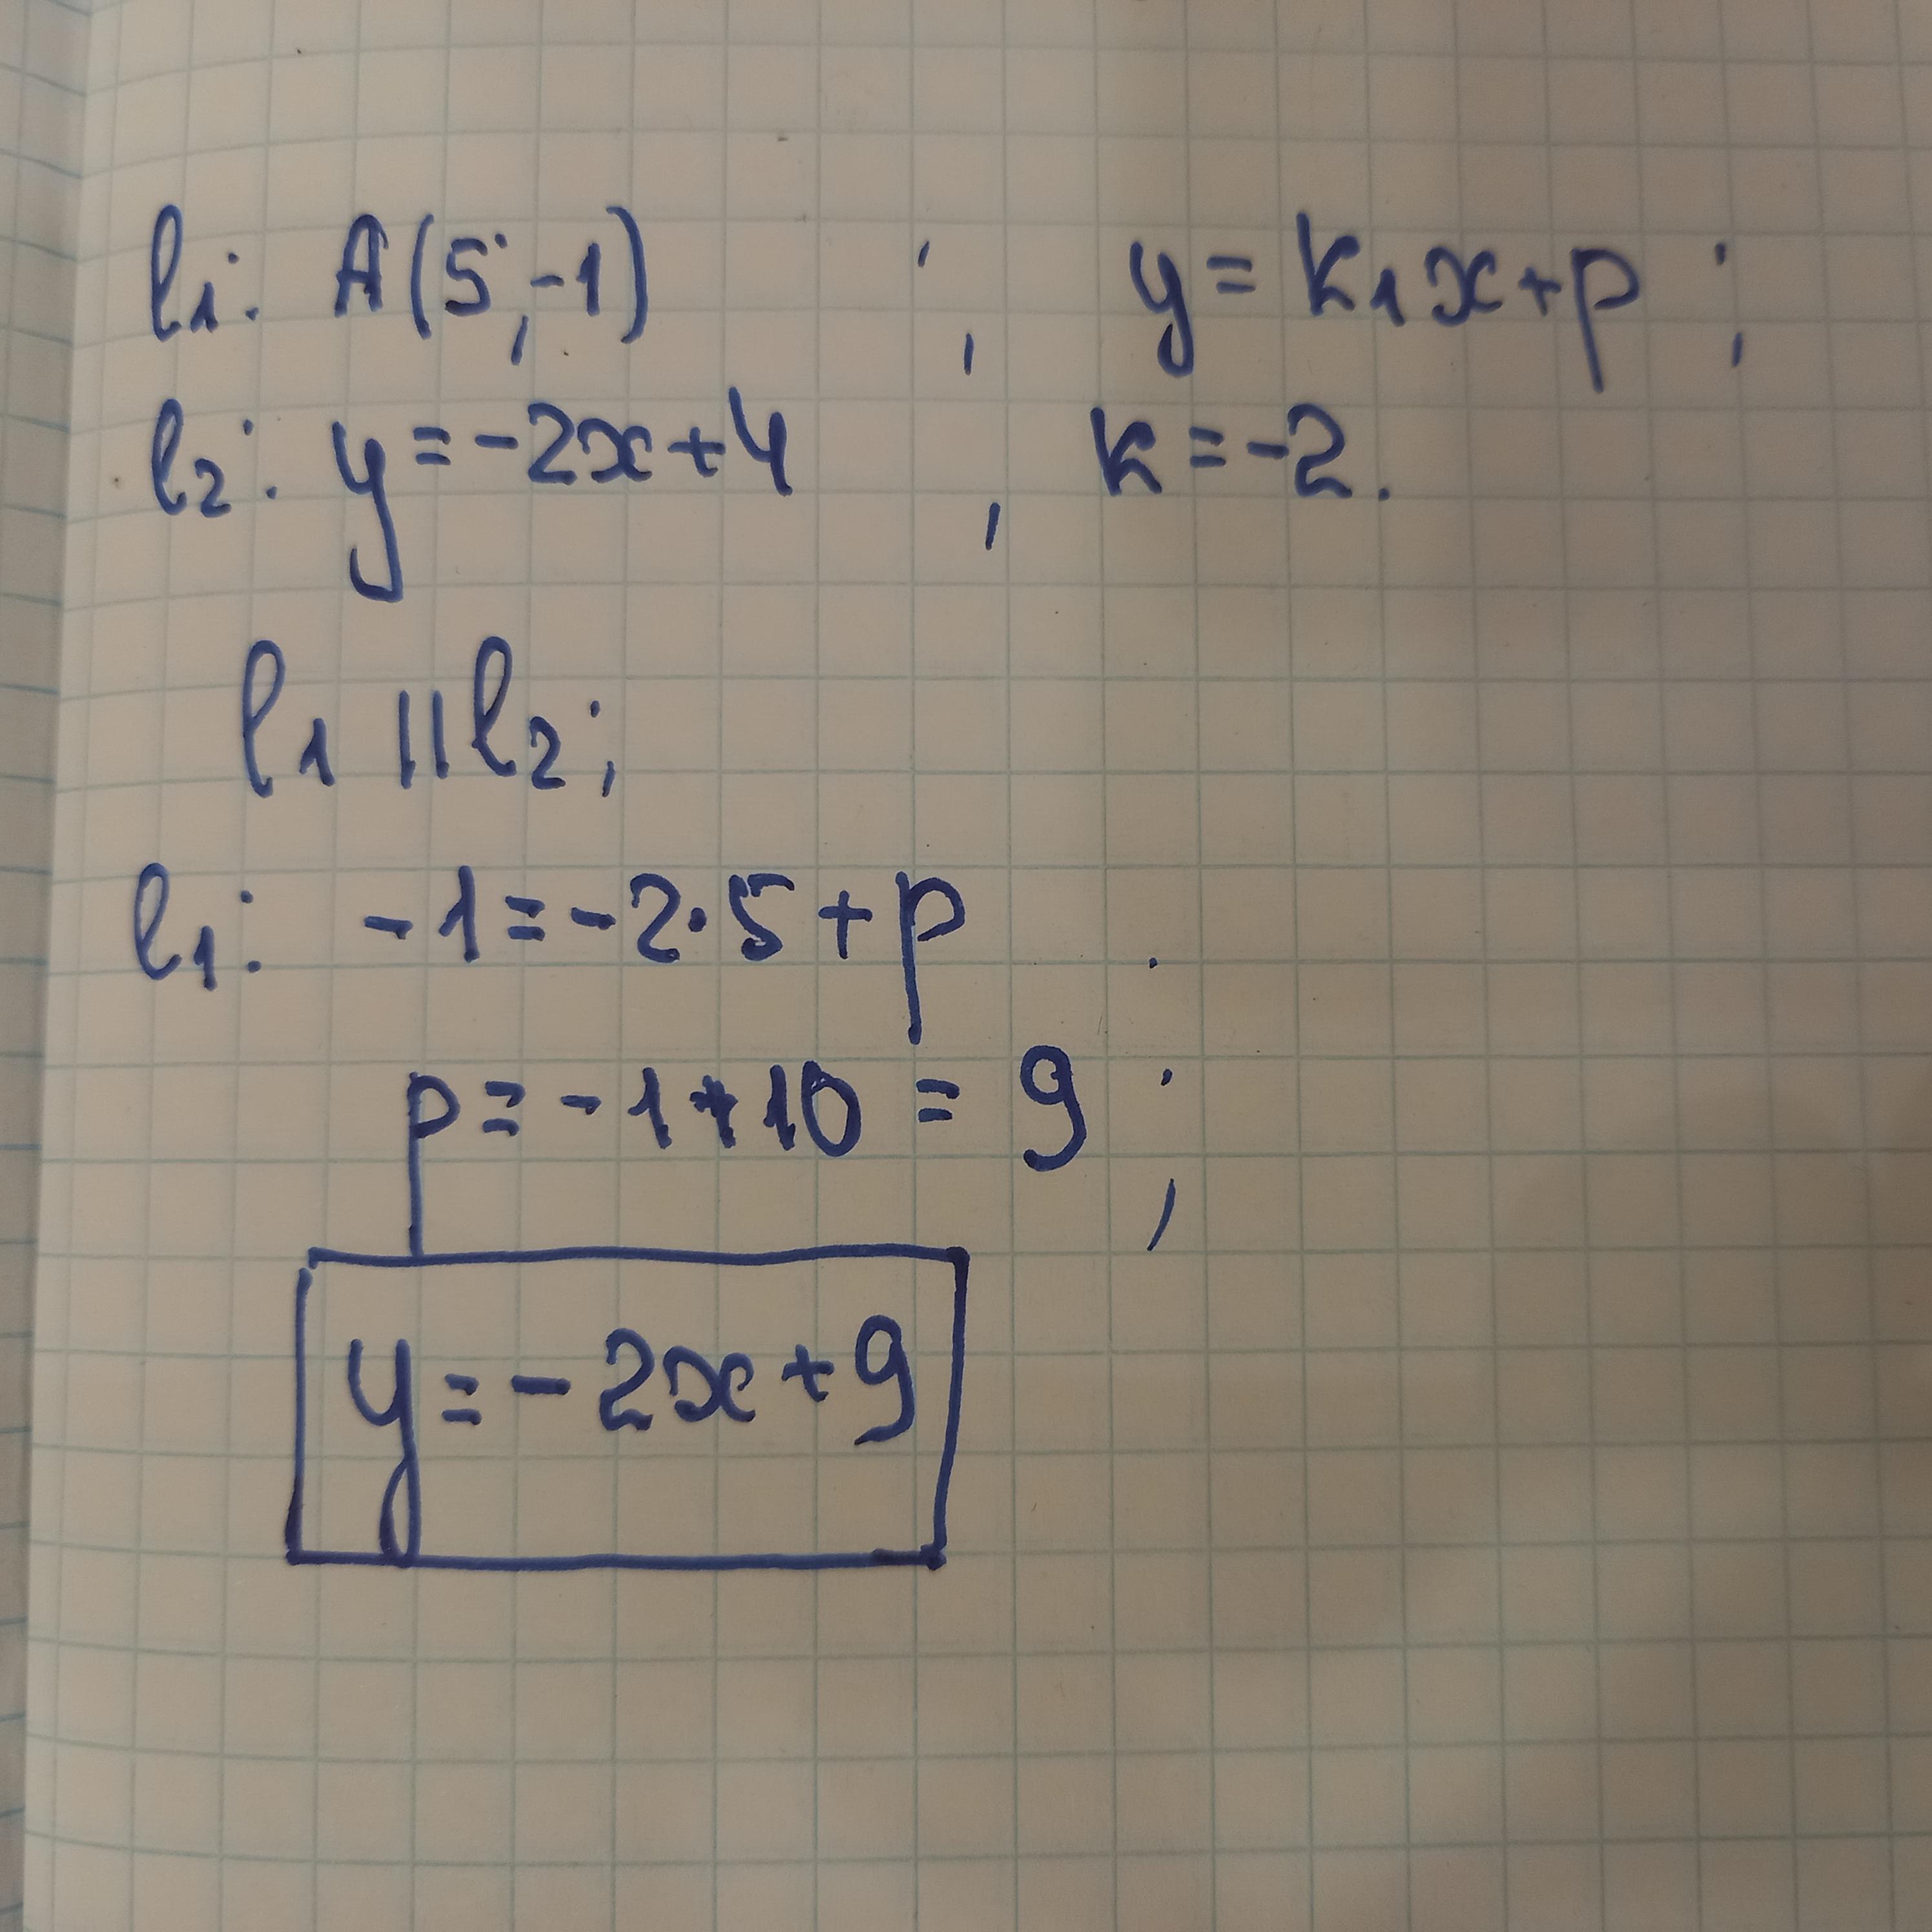 l₁: A(5;-1) ; y = k₁x+p ;
l₂: y=-2x+4 , k=-2.
l₁ || l₂;
l₁: -1=-2·5+p
p=-1+10 = 9 ;
y=-2x+9